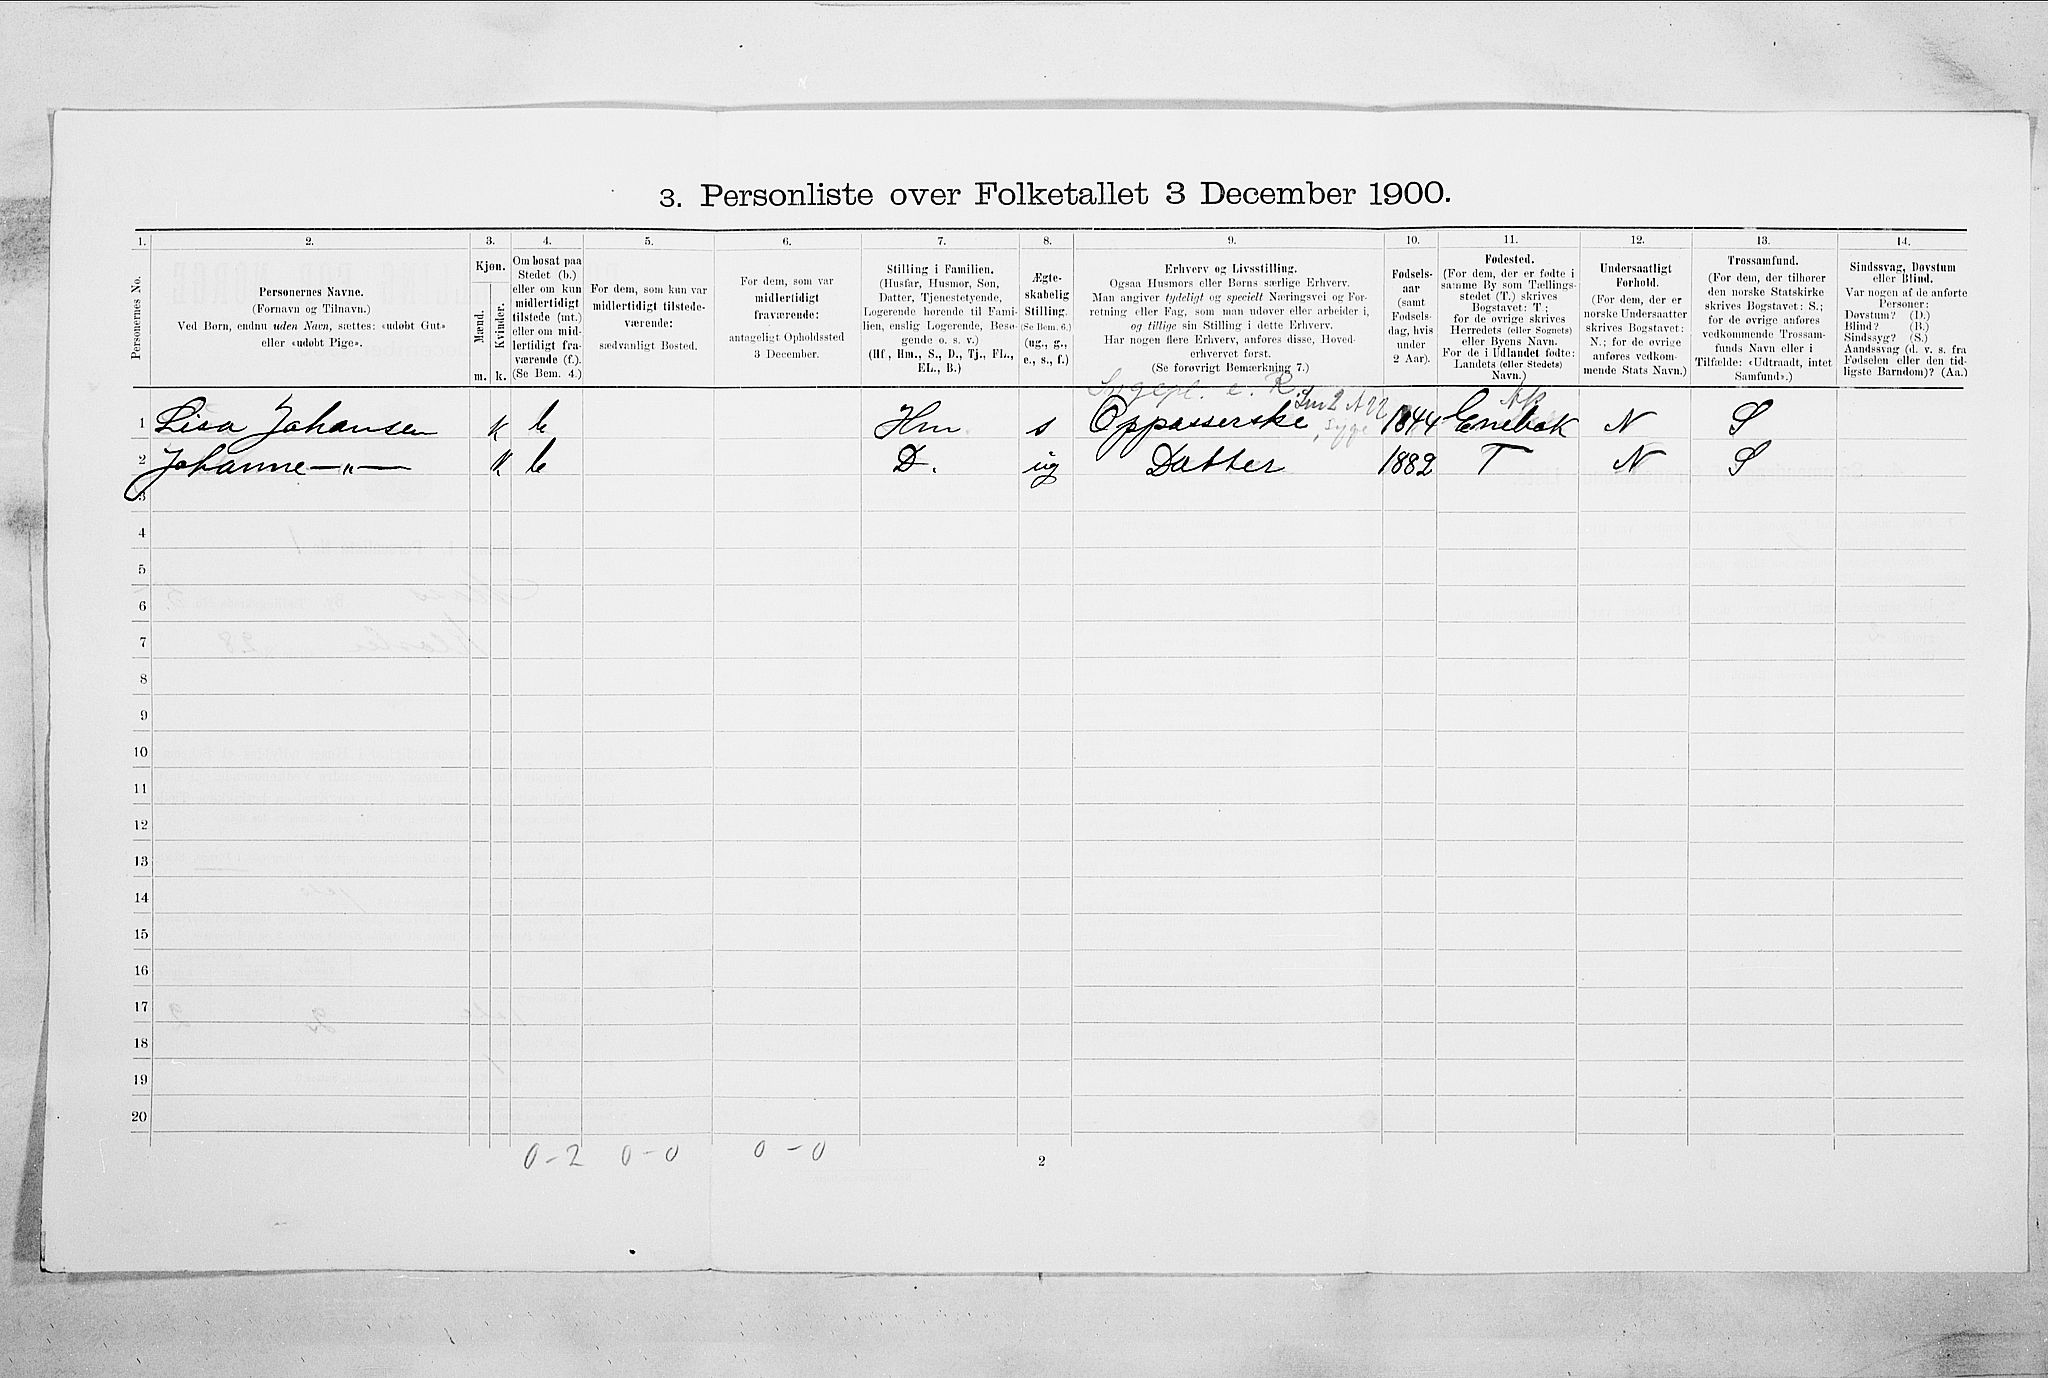 3. Personliste over Folketallet 3 December 1900.
1. 2. 3. 4. 5. 6. 7. 8. 9. 10. 11. 12. 13. 14.
Personernes No.
Personernes Navne.
(Fornavn og Tilnavn.)
Ved Børn, endnu uden Navn, sættes: «udøbt Gut»
eller «udøbt Pige».
Kjøn.
Mænd.
Kvinder.
m. k.
Om bosat paa
Stedet (b.)
eller om kun
midlertidigt
tilstede (mt.)
eller om mid-
lertidigt fra-
værende (f.).
(Se Bem. 4.)
For dem, som kun var
midlertidigt tilstede-
værende:
sædvanligt Bosted.
For dem, som var
midlertidigt
fraværende:
antageligt Opholdssted
3 December.
Stilling i Familien.
(Husfar, Husmor, Søn,
Datter, Tjenestetyende,
Logerende hørende til Fami-
lien, enslig Logerende, Besø-
gende o. s. v.)
(Hf., Hm., S., D., Tj., FL.,
EL., B.)
Ægte-
skabelig
Stilling.
(Se Bem. 6.)
(ug., g.,
e., s., f.)
Erhverv og Livsstilling.
Ogsaa Husmors eller Børns særlige Erhverv.
Man angiver tydeligt og specielt Næringsvei og For-
retning eller Fag, som man udøver eller arbeider i,
og tillige sin Stilling i dette Erhverv.
Har nogen flere Erhverv, anføres disse, Hoved-
erhvervet først.
(Se forøvrigt Bemærkning 7.)
Fødsels-
aar
(samt
Fødsels-
dag, hvis
under
2 Aar).
Fødested.
(For dem, der er fødte i
samme By som Tællings-
stedet (T.) skrives
Bogstavet: T;
for de øvrige skrives
Herredets (eller Sognets)
eller Byens Navn.
For de i Udlandet fødte:
Landets (eller Stedets)
Navn.)
Undersaatligt
Forhold.
(For dem, der er
norske Undersaatter
skrives Bogstavet:
N.; for de øvrige
anføres vedkom-
mende Stats Navn.)
Trossamfund.
(For dem, der tilhører
den norske Statskirke
skrives Bogstavet: S.;
for de øvrige anføres
vedkommende Trossam-
funds Navn eller i
Tilfælde: «Udtraadt, intet
Samfund».)
Sindssvag, Døvstum
eller Blind.
Var nogen af de anførte
Personer:
Døvstum? (D.)
Blind? (B.)
Sindssyg? (S.)
Aandssvag (d. v. s. fra
Fødselen eller den tid-
ligste Barndom)? (Aa.)
Sygepl. e. R. Ak
1 Lisa Johansen k b Hm s Oppasserske 1844 Enebak N S
2 Johanne —„— k b D. ug Datter 1882 T N S
3
4
5
6
7
8
9
10
11
12
13
14
15
16
17
18
19
20
0-2 0-0 0-0
2